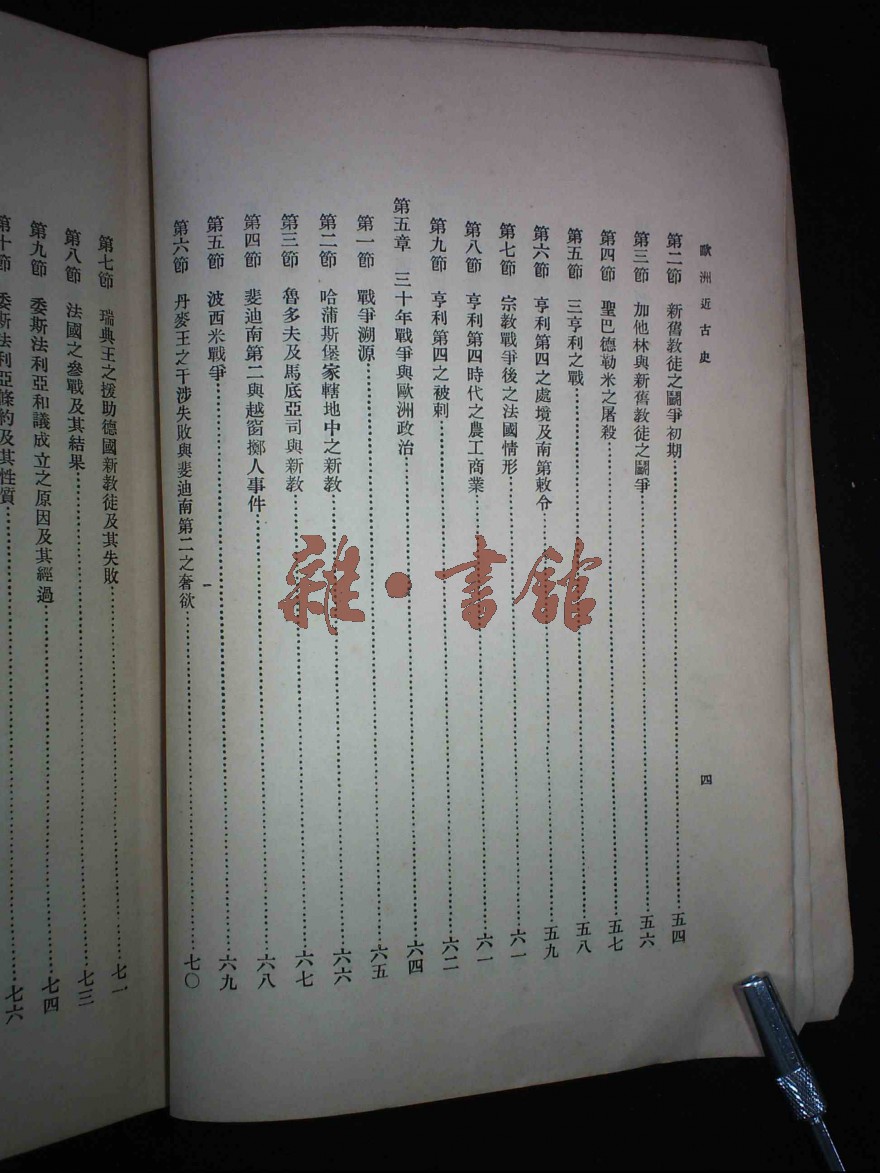 歐洲近古史
四
第二節 新舊教徒之鬪爭初期……五四
第三節 加他林與新舊教徒之鬪爭……五六
第四節 聖巴德勒米之屠殺……五七
第五節 三亨利之戰……五八
第六節 亨利第四之處境及南第敕令……五九
第七節 宗教戰爭後之法國情形……六一
第八節 亨利第四時代之農工商業……六一
第九節 亨利第四之被刺……六二
第五章 三十年戰爭與歐洲政治……六四
第一節 戰爭溯源……六五
第二節 哈蒲斯堡家轄地中之新教……六六
第三節 魯多夫及馬底亞司與新教……六七
第四節 斐迪南第二與越窗擲人事件……六八
第五節 波西米戰爭……六九
第六節 丹麥王之干涉失敗與斐迪南第二之奢欲……七〇
第七節 瑞典王之援助德國新教徒及其失敗……七一
第八節 法國之參戰及其結果……七三
第九節 委斯法利亞和議成立之原因及其經過……七四
第十節 委斯法利亞條約及其性質……七六
雜·書館